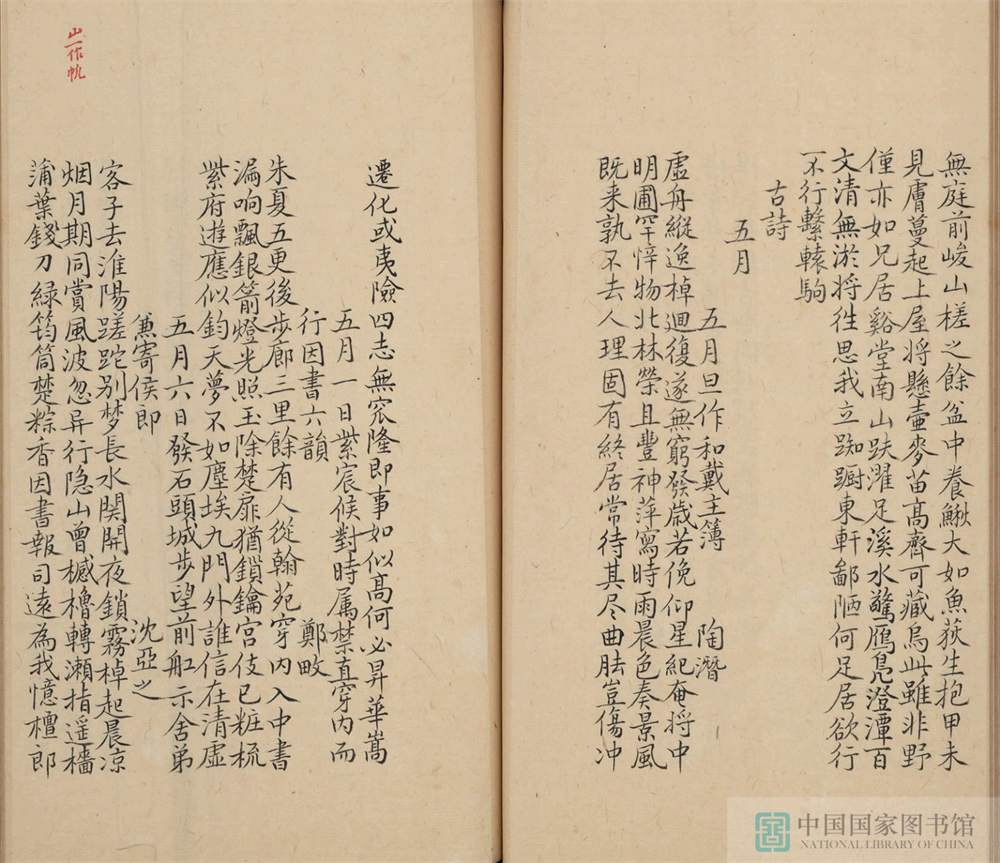 無庭前峻山槎之餘盆中養鰍大如魚荻生抱甲未
見膚蔓起上屋將懸壺麥苗高齊可藏烏此雖非野
僅亦如兄居谿堂南山趺濯足溪水驚鴈鳧澄潭百
文清無淤將徃思我立踟躕東軒鄙陋何足居欲行
不行繫轅駒
古詩
五月
五月旦作和戴主簿 陶潛
虛舟縱逸棹迴復遂無窮發歲若俛仰星紀奄將中
明圃罕悴物北林榮且豐神萍寫時雨晨色奏景風
既来孰不去人理固有終居常待其尽曲肱豈傷冲
遷化或夷險四志無窊隆即事如似高何必昇華嵩
五月一日紫宸候對時属禁直穿內而
行因書六韻 鄭畋
朱夏五更後步廊三里餘有人從翰苑穿內入中書
漏响飄銀箭燈光照玉除楚扉猶鎖鑰宮伎已粧梳
紫府遊應似鈞天夢不如塵埃九門外誰信在清虛
五月六日發石頭城步望前舡示舍弟
兼寄侯郎 沈亞之
客子去淮陽蹉跎别梦長水関開夜鎖霧棹起晨凉
烟月期同賞風波忽异行隐山曾撼櫓轉瀨指遥檣
蒲葉錢刀綠筠筒楚粽香因書報司遠為我憶檀郎
山一作帆
中国国家图书馆
NATIONAL LIBRARY OF CHINA